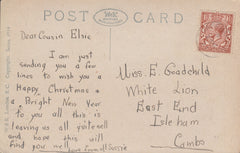 POST CARD
Dear Cousin Elsie
I am just
sending you a few
lines to wish you a
Happy Christmas +
a Bright New Year
to you all this is
leaving us all quite well
and hope it will
find you well
love from all
Miss. E. Goodchild
White Lion
East End
Isleham
Cambs